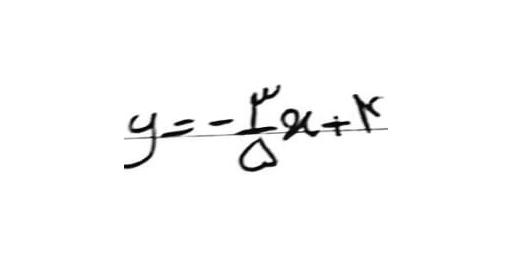 y = -۳/۵ x + ۲